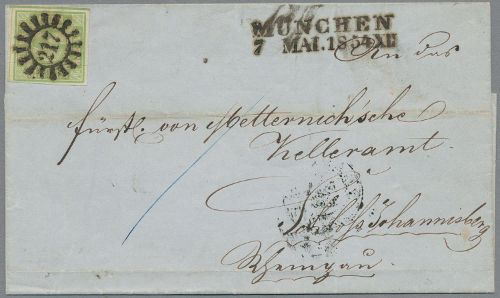 217
MÜNCHEN
7 MAI. 1851 XII
An das
fürstl. von Metternich'sche
Kelleramt
Schloß Johannisberg
Rheingau.